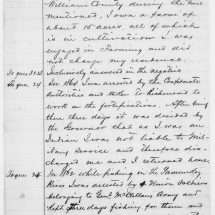 William County during the war
mentioned, I own a farm of
about 15 acres all of which
is in cultivation I was
engaged in farming and did
not change my residence.
Inclusively answered in the negative
I was arrested by the Confederate
authorities and taken to Richmond to
work on the fortifications. After being
there three days it was decided by
the Governor that as I was an
Indian I was not liable to Mil-
itary Service and therefore dis-
charged me and I returned home.
In 1862 while fishing on the Pamunky
River I was arrested by
belonging to Genl McClellans Army and
kept three days fishing for them and